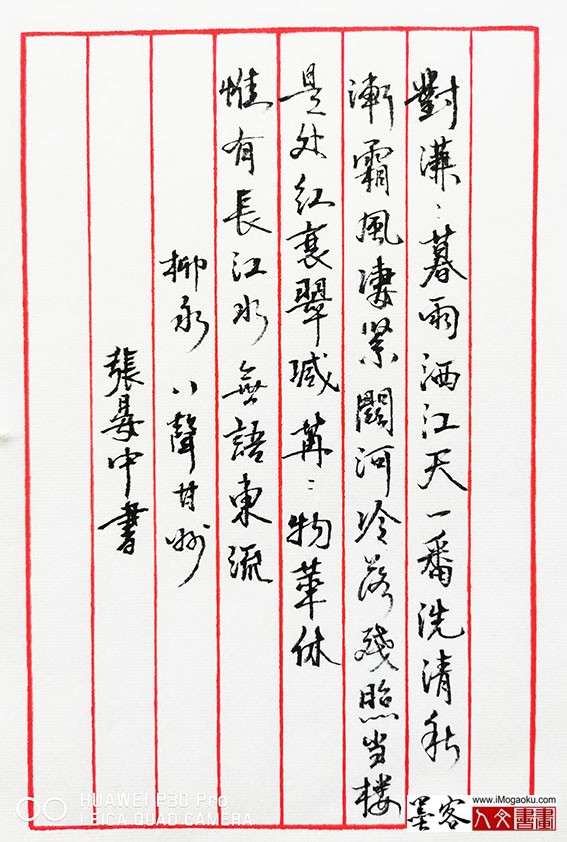 對瀟〻暮雨洒江天一番洗清秋
漸霜風凄緊關河冷落残照当楼
是处红衰翠减苒〻物華休
惟有長江水無語東流
柳永八聲甘州
張晏中書
HUAWEI P30 Pro
LEICA QUAD CAMERA
墨客
www.iMogaoku.com
人文書畫